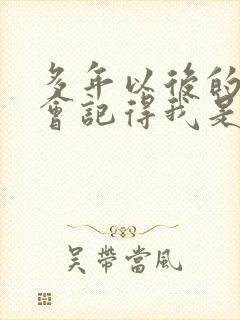 多年以後的
會記得我是
吳帶當風